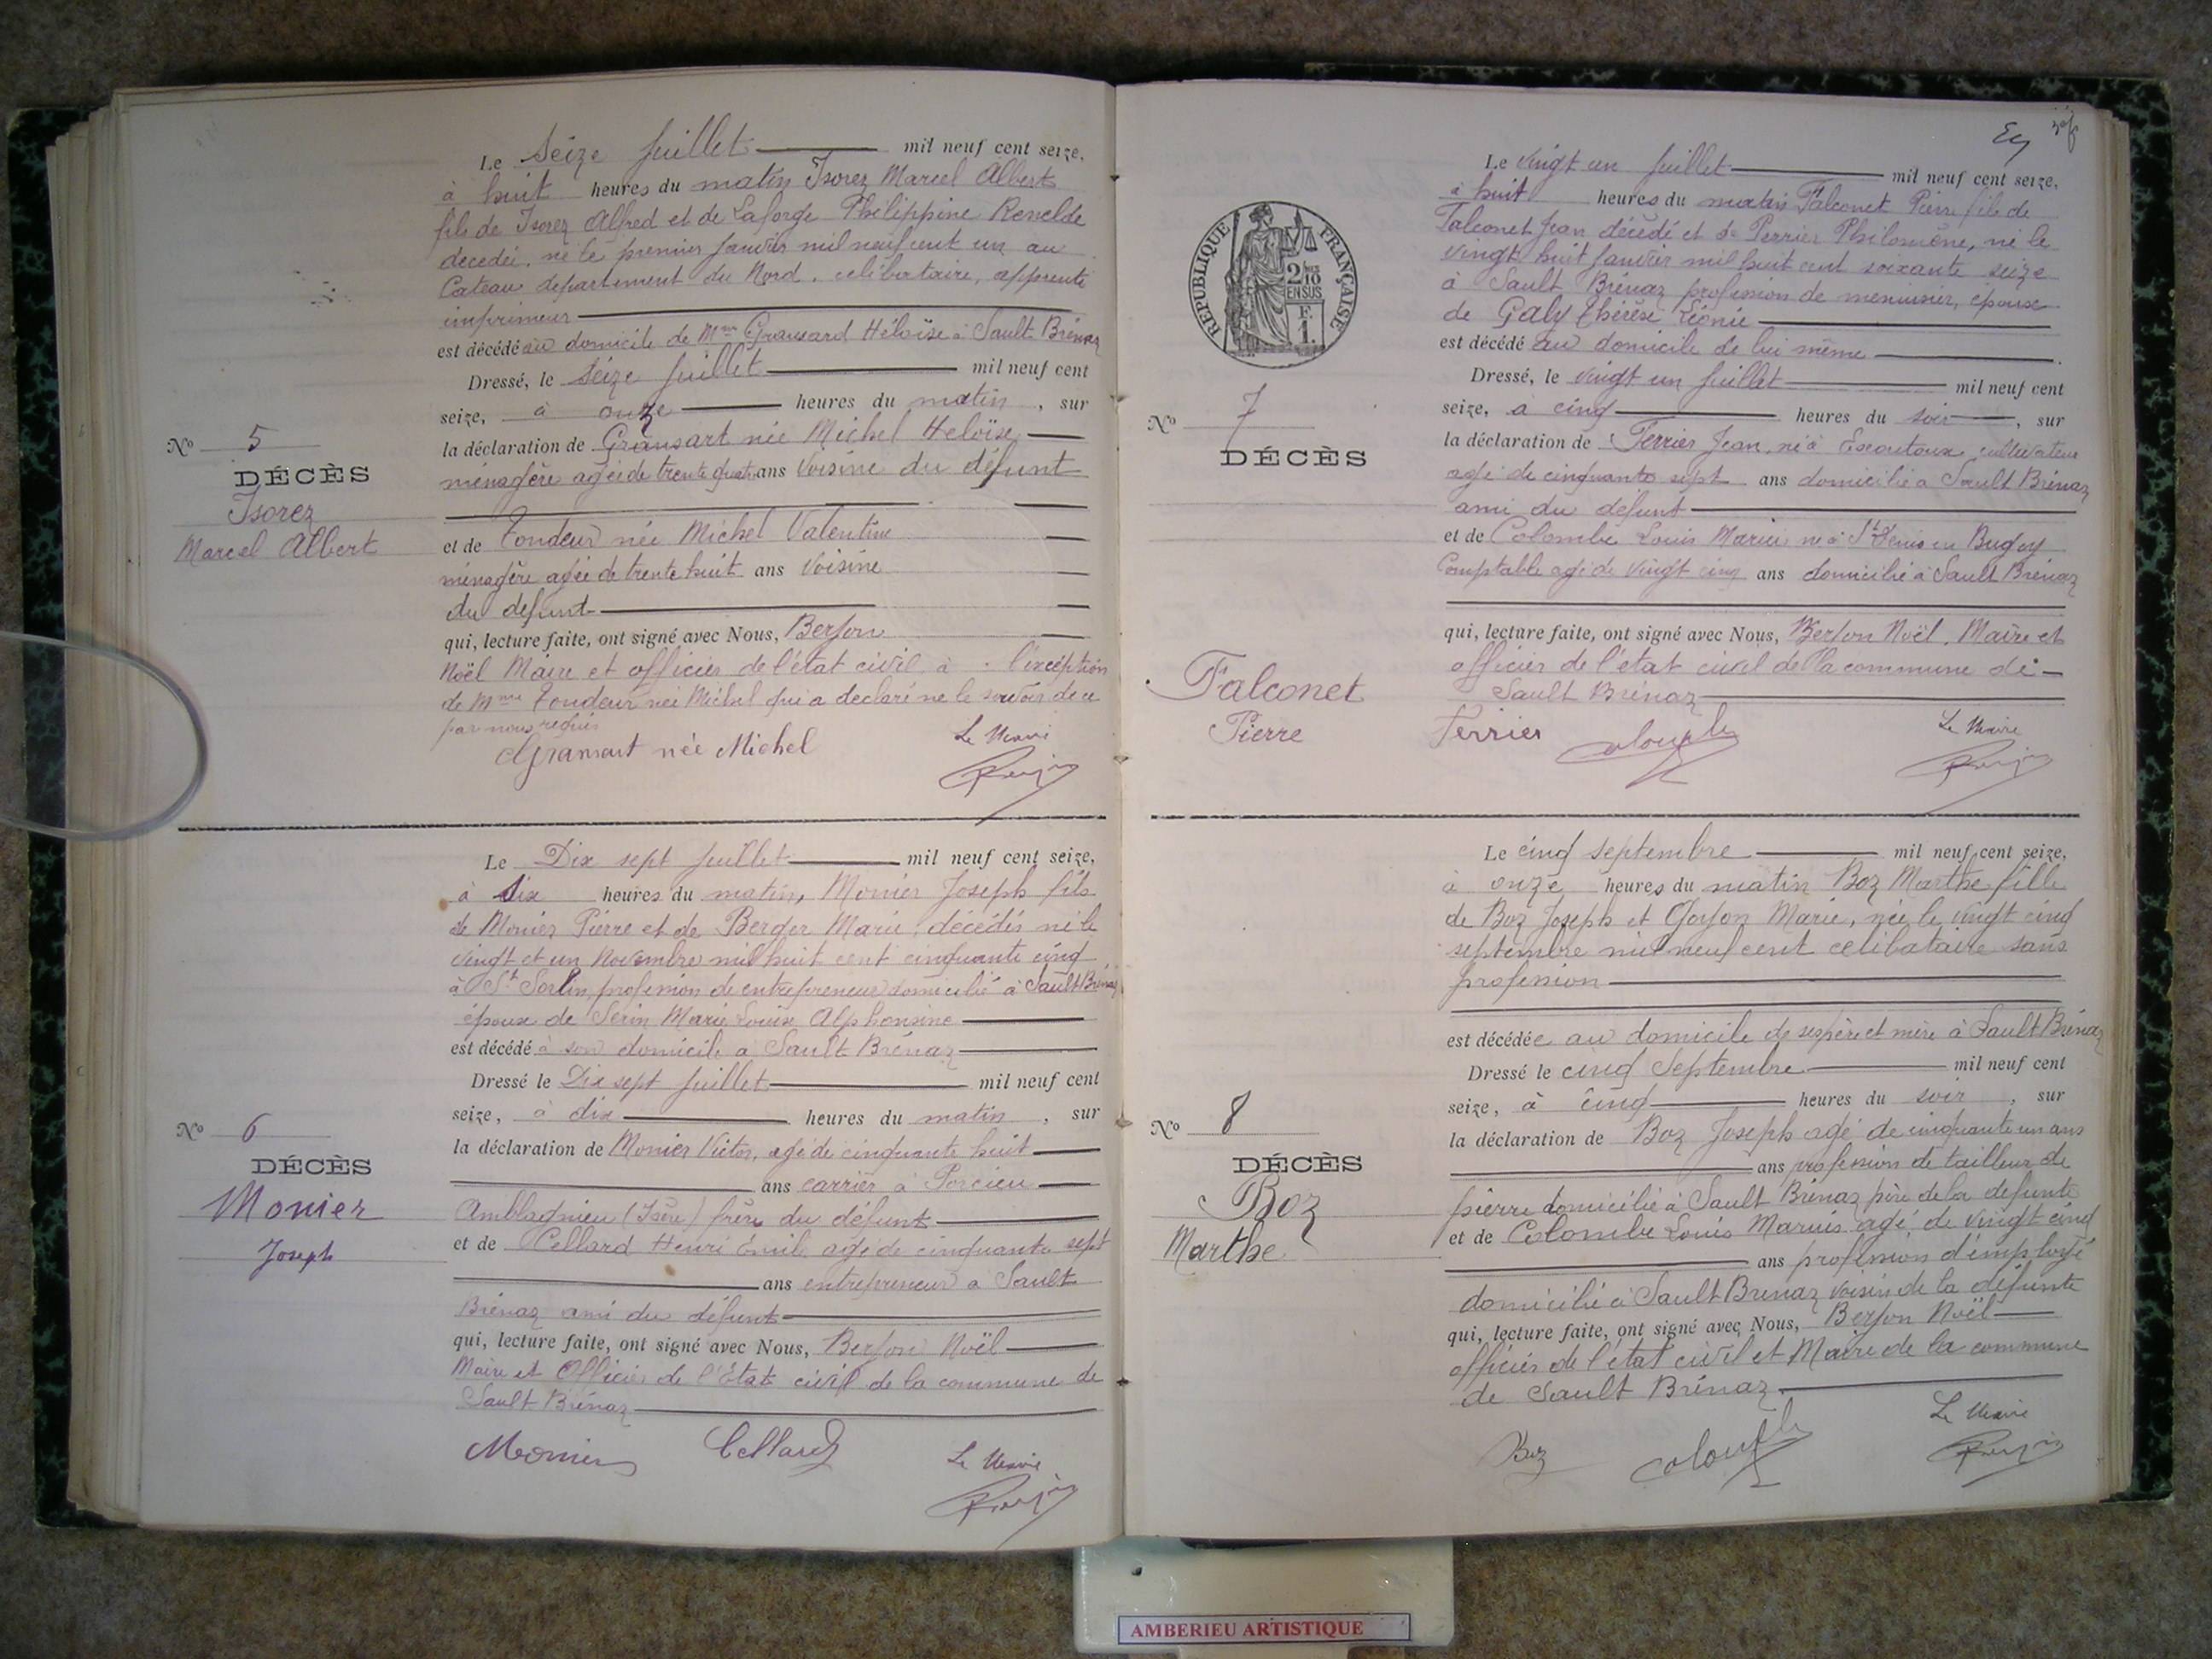 Le Seize Juillet mil neuf cent seize,
à huit heures du matin Isorez Marcel Albert
fils de Isorez Alfred et de Laforge Philippine Renelde
decedée, né le premier Janvier mil neuf cent un au
Cateau departement du Nord, celibataire, apprenti
imprimeur
est décédé au domicile de Mme Gransard Héloïse à Sault Brénaz
Dressé, le Seize Juillet mil neuf cent
seize, à onze heures du matin, sur
la déclaration de Gransart née Michel Heloïse
ménagère agée de trente quatre ans Voisine du défunt
et de Tondeur née Michel Valentine
ménagère agée de trente huit ans Voisine
du defunt
qui, lecture faite, ont signé avec Nous, Berjon
Noël Maire et officier de l'état civil à l'exception
de Mme Tondeur née Michel qui a declaré ne le savoir de ce
par nous requis
Gransart née Michel
Le Maire
No 5
DÉCÈS
Isorez
Marcel Albert
Le Dix sept Juillet mil neuf cent seize,
à dix heures du matin, Monier Joseph fils
de Monier Pierre et de Berger Marie décédés né le
vingt et un Novembre mil huit cent cinquante cinq
à St Sorlin, profession de entrepreneur domicilié à Sault Brénaz
époux de Serin Marie Louise Alphonsine
est décédé à son domicile a Sault Brénaz
Dressé le Dix sept Juillet mil neuf cent
seize, à dix heures du matin, sur
la déclaration de Monier Victor, agé de cinquante huit
ans carrier à Porcieu
Amblagnieu (Isère) frère du défunt
et de Cellard Henri Emile agé de cinquante sept
ans entrepreneur a Sault
Brénaz ami du défunt
qui, lecture faite, ont signé avec Nous, Berjon Noël
Maire et Officier de l'Etat civil de la commune de
Sault Brénaz
Monier
Cellard
Le Maire
No 6
DÉCÈS
Monier
Joseph
RÉPUBLIQUE FRANÇAISE
2/10 EN SUS
F. 1.
Le vingt un Juillet mil neuf cent seize,
à huit heures du matin Falconet Pierre fils de
Falconet Jean décédé et de Perrier Philomène, né le
vingt huit Janvier mil huit cent soixante seize
à Sault Brénaz profession de menuisier, époux
de Galy thérèse Léonie
est décédé au domicile de lui même
Dressé, le vingt un Juillet mil neuf cent
seize, à cinq heures du soir, sur
la déclaration de Ferrier Jean, né à cultivateur
agé de cinquante sept ans domicilié a Sault Brénaz
ami du défunt
et de Colombe Louis Marius né à St Denis en Bugey
Comptable agé de Vingt cinq ans domicilié à Sault Brénaz
qui, lecture faite, ont signé avec Nous, Berjon Noël, Maire et
officier de l'état civil de la commune de
Sault Brénaz
Ferrier
Colombe
Le Maire
No 7
DÉCÈS
Falconet
Pierre
Le cinq Septembre mil neuf cent seize,
à onze heures du matin Boz Marthe fille
de Boz Joseph et Goyon Marie, née le vingt cinq
septembre mil neuf cent celibataire sans
profession
est décédée au domicile de ses père et mère à Sault Brénaz
Dressé le cinq Septembre mil neuf cent
seize, à cinq heures du soir, sur
la déclaration de Boz Joseph agé de cinquante un ans
ans profession de tailleur de
pierre domicilié à Sault Brénaz père de la defunte
et de Colombe Louis Marius agé de vingt cinq
ans profession d'employé
domicilié à Sault Brénaz voisin de la défunte
qui, lecture faite, ont signé avec Nous, Berjon Noël
officier de l'état civil et Maire de la commune
de Sault Brénaz
Boz
Colombe
Le Maire
No 8
DÉCÈS
Boz
Marthe
AMBERIEU ARTISTIQUE